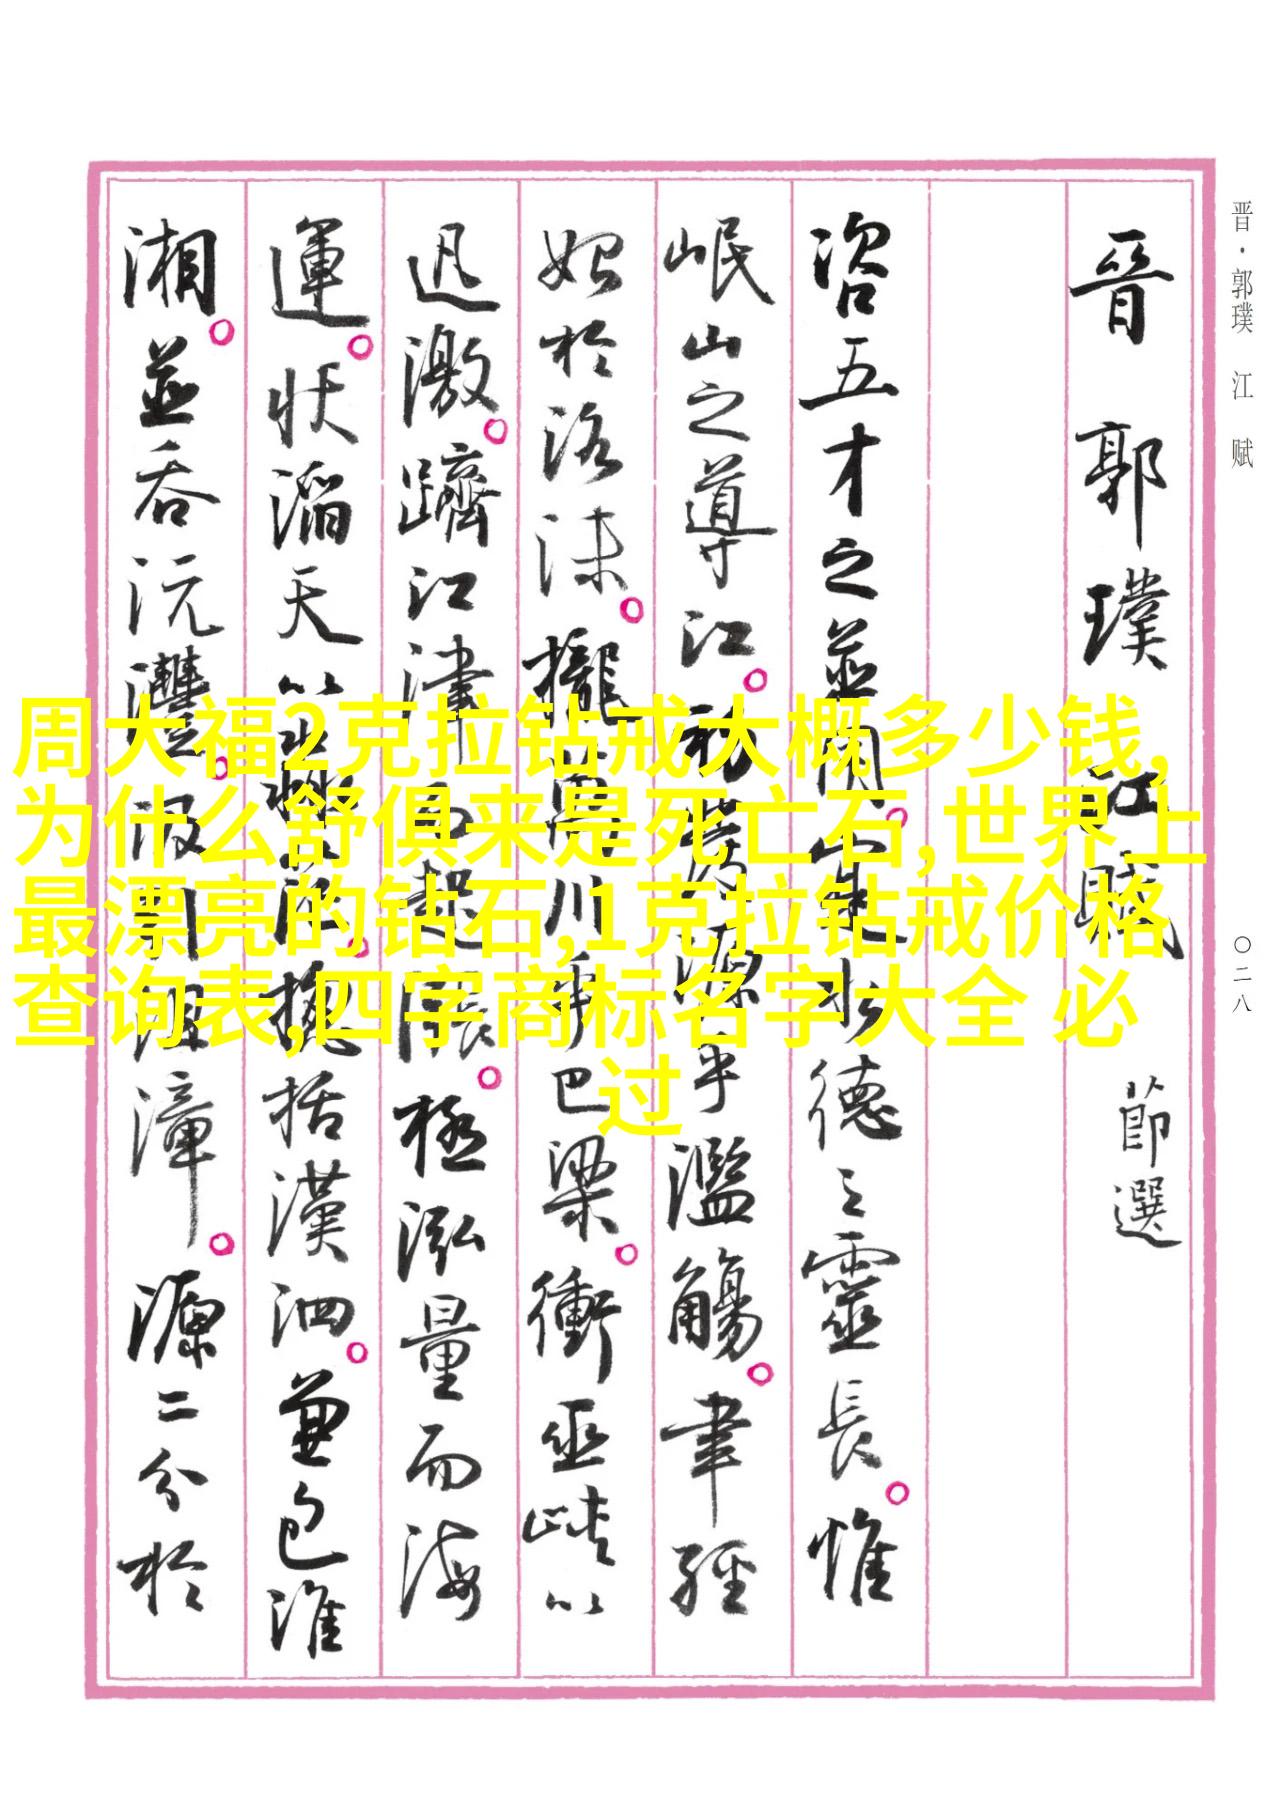 晋·郭璞 江赋
〇二八
晉郭璞江賦 節選
咨五才之並用。寔水德之靈長。惟
岷山之導江。初發源乎濫觴。聿經
始於洛沬。攏萬川乎巴梁。衝巫峽以
迅激。躋江津而起漲。極泓量而海
運。状滔天以淼茫。揔括漢泗。兼包淮
湘。並吞沅灃。汲引沮漳。源二分於
周大福2克拉钻戒大概多少钱,
为什么舒俱来是死亡石,世界上
最漂亮的钻石,1克拉钻戒价格
查询表,四字商标名字大全 必
过